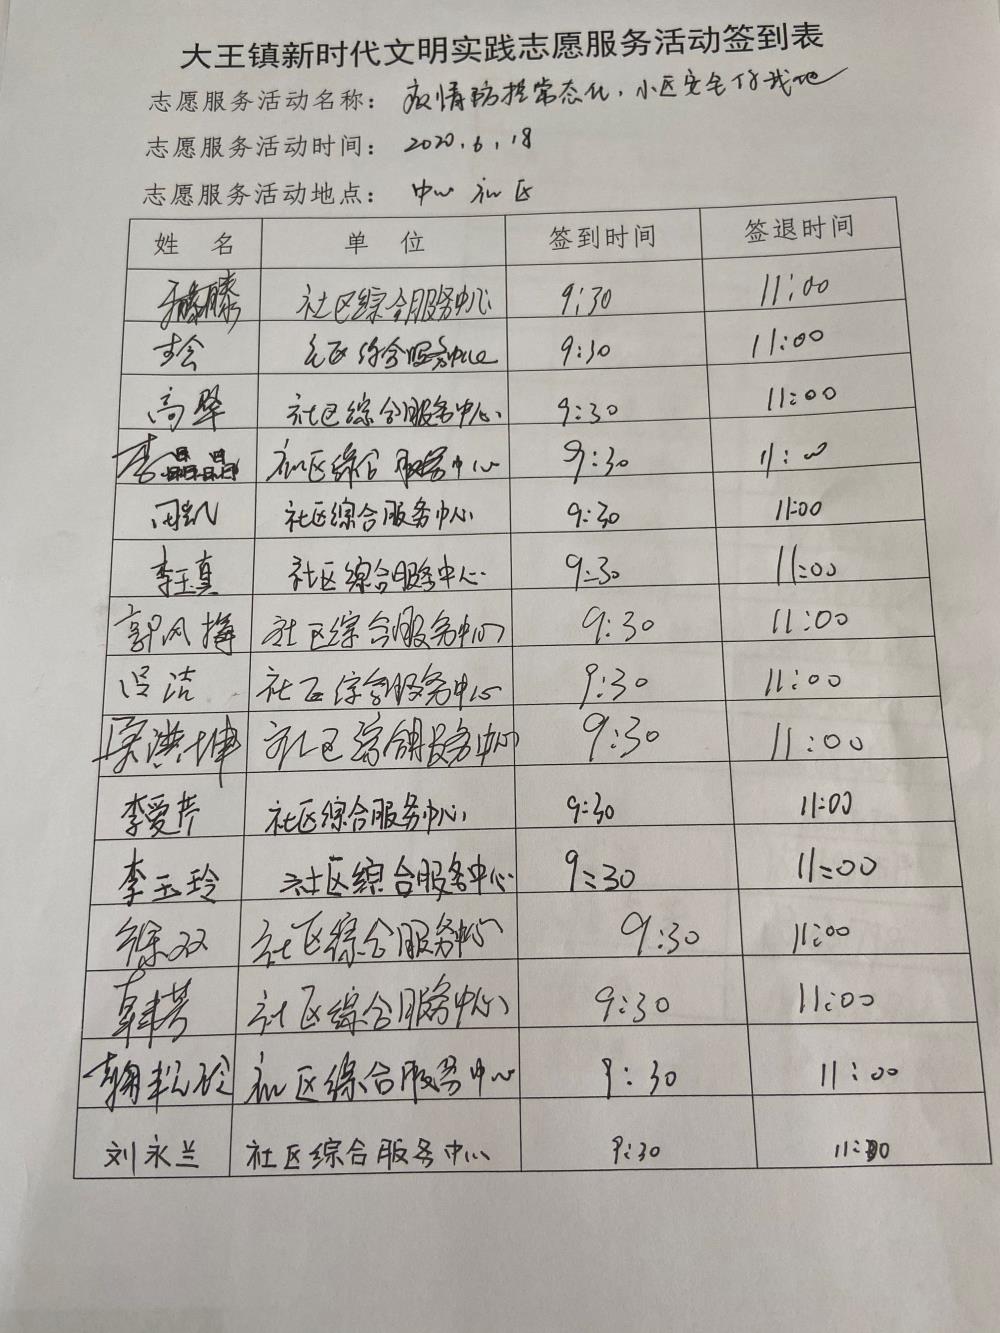 大王镇新时代文明实践志愿服务活动签到表
志愿服务活动名称：疫情防控常态化，小区安全
志愿服务活动时间：2020.6.18
志愿服务活动地点：中心社区
姓 名 单 位 签到时间 签退时间
社区综合服务中心 9:30 11:00
李会 社区综合服务中心 9:30 11:00
高翠 社区综合服务中心 9:30 11:00
李晶晶 社区综合服务中心 9:30 11:00
周凯 社区综合服务中心 9:30 11:00
李玉真 社区综合服务中心 9:30 11:00
郭风梅 社区综合服务中心 9:30 11:00
吕洁 社区综合服务中心 9:30 11:00
洪坤 社区综合服务中心 9:30 11:00
李爱芹 社区综合服务中心 9:30 11:00
李玉玲 社区综合服务中心 9:30 11:00
徐双 社区综合服务中心 9:30 11:00
社区综合服务中心 9:30 11:00
社区综合服务中心 9:30 11:00
刘永兰 社区综合服务中心 9:30 11:00